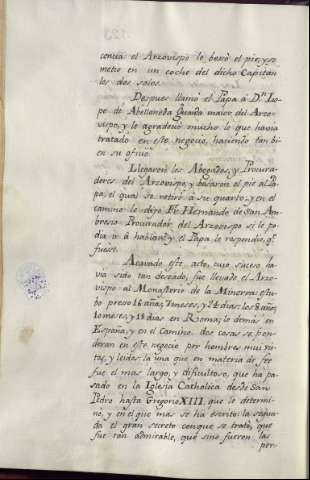 tenxia el Arzovispo le besò el pie, y se
metio en un coche del dicho Capitan
los dos solos.
Despues llamó el Papa à Dⁿ. Lo-
pe de Abellaneda quada maior del Arzo-
vispo, y le agradeciò mucho lo que havia
tratado en este negocio, haviendo tan bi-
en su oficio.
Llegaron los Abogados, y Procura-
dores del Arzovispo, y basaron el pie al Pa-
pa, el qual se retirò à su quarto, y en el
camino le dijo Fr. Hernando de San Am-
brosio Procurador del Arzovispo si le po-
dia ir à hablar, y el Papa le respondio, qᵉ.
fuese.
Acavado este acto, cuio suceso ha-
via sido tan deseado, fue llevado el Arzo-
vispo al Monasterio de la Minerva: estu-
bo preso 16 años, 7 meses, y 24 dias: los 9 años,
10 meses, y 12 dias en Roma; lo demas en
España, y en el camino. dos cosas se pon-
deran en este negocio por hombres mui vis-
tos, y leidos: la una que en materia de fee
fue el mas largo, y dificultoso, que hà pa-
sado en la Iglesia Catholica desde San
Pedro hasta Gregorio XIII, que lo determi-
nò, y en el que mas se hà escrito: la segun-
da el gran secreto conque se tratò, que
fue tan admirable, que sino fueron las
per-